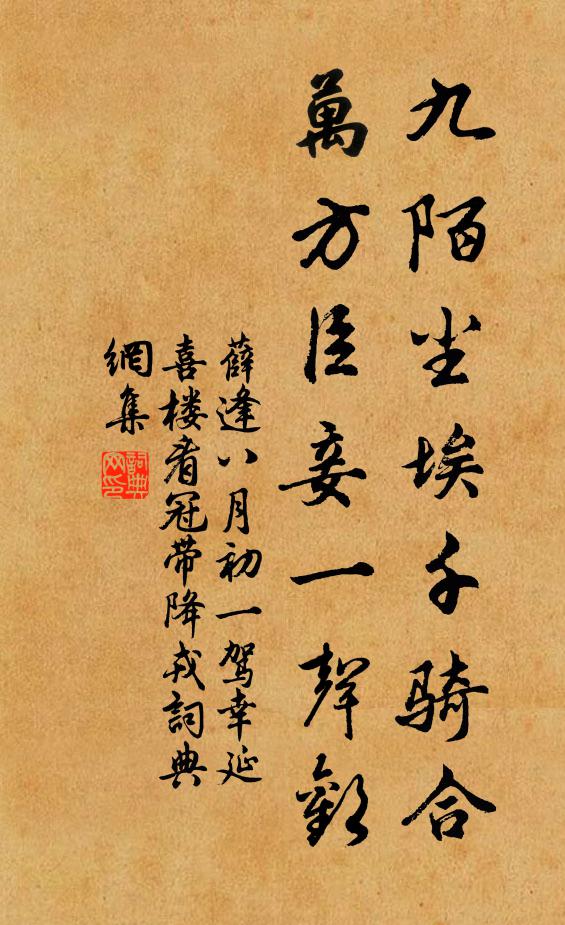 九陌尘埃千骑合
萬方臣妾一聲歡
薛逢八月初一驾幸延
喜楼看冠带降戎詞典
網集
詞典
网印